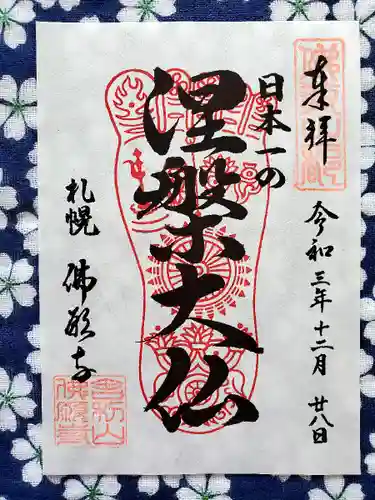 奉拝
令和三年十二月廿八日
日本一の
涅槃大仏
札幌 佛願寺